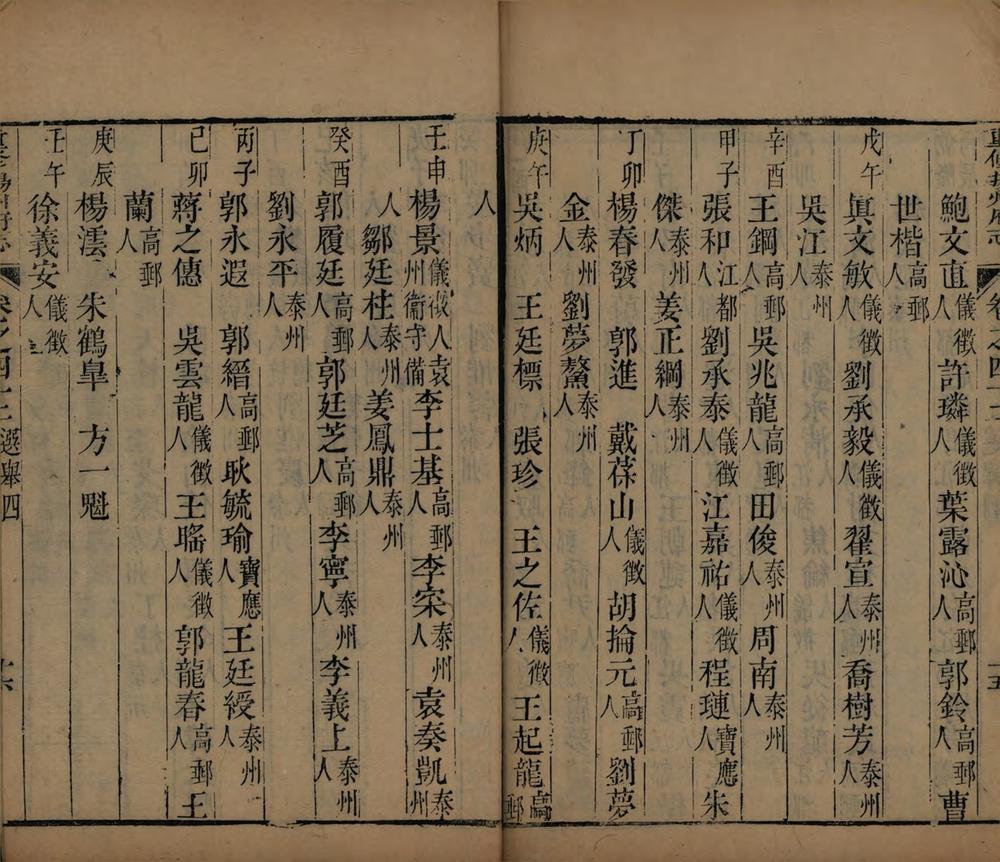 鮑文直儀徵人 許璘儀徵人 葉露沁高郵人 郭鈴高郵人 曹
世楷高郵人
戊午 眞文敏儀徵人 劉承毅儀徵人 翟宣泰州人 喬樹芳泰州人
吳江泰州人
辛酉 王鋼高郵人 吳兆龍高郵人 田俊泰州人 周南泰州人
甲子 張和江都人 劉承泰儀徵人 江嘉祐儀徵人 程璉寶應人 朱
傑泰州人 姜正綱泰州人
丁卯 楊春發 郭進 戴葆山儀徵人 胡掄元高郵人 劉夢
金泰州人 劉夢鰲泰州人
庚午 吳炳 王廷標 張珍 王之佐儀徵人 王起龍高郵
人
壬申 楊景儀徵人袁州衞守備 李士基高郵人 李寀泰州人 袁奏凱泰州
人 鄒廷柱泰州人 姜鳳鼎泰州人
癸酉 郭履廷高郵人 郭廷芝高郵人 李寧泰州人 李義上泰州人
劉永平泰州人
丙子 郭永遐 郭縉高郵人 耿毓瑜寶應人 王廷綬泰州人
己卯 蔣之僡 吳雲龍儀徵人 王暚儀徵人 郭龍春高郵人 王
蘭高郵人
庚辰 楊澐 朱鶴皐 方一魁
壬午 徐義安儀徵人
卷之四十三 選舉四 十六